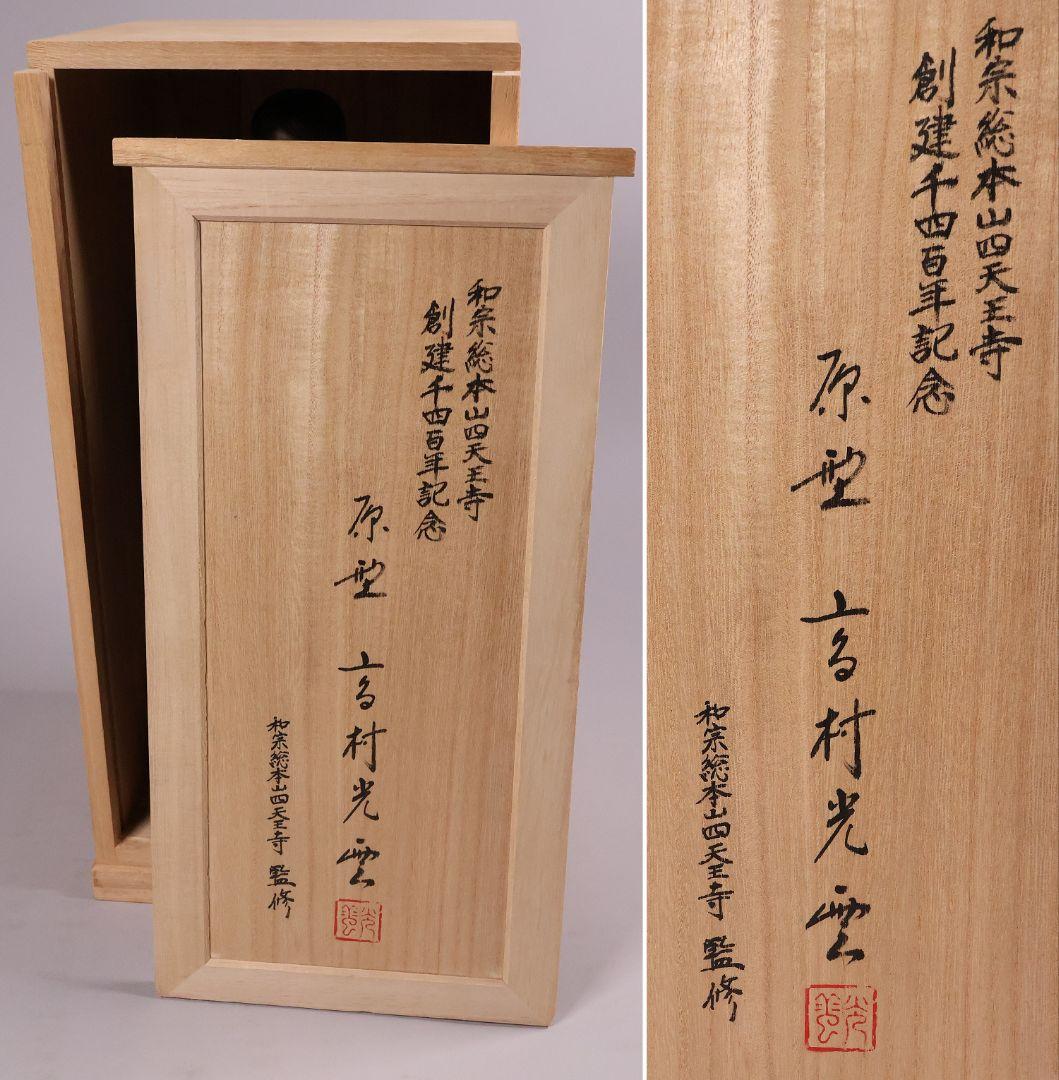 和宗総本山四天王寺
創建千四百年記念
原型 高村光雲
和宗総本山四天王寺 監修
光雲
和宗総本山四天王寺
創建千四百年記念
原型 高村光雲
和宗総本山四天王寺 監修
光雲